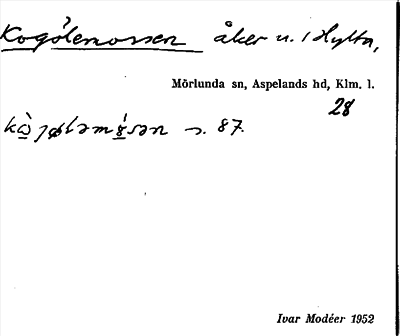 Kogölemossen åker u. 1 Hylta,
Mörlunda sn, Aspelands hd, Klm. l.
28
s. 87.
Ivar Modéer 1952